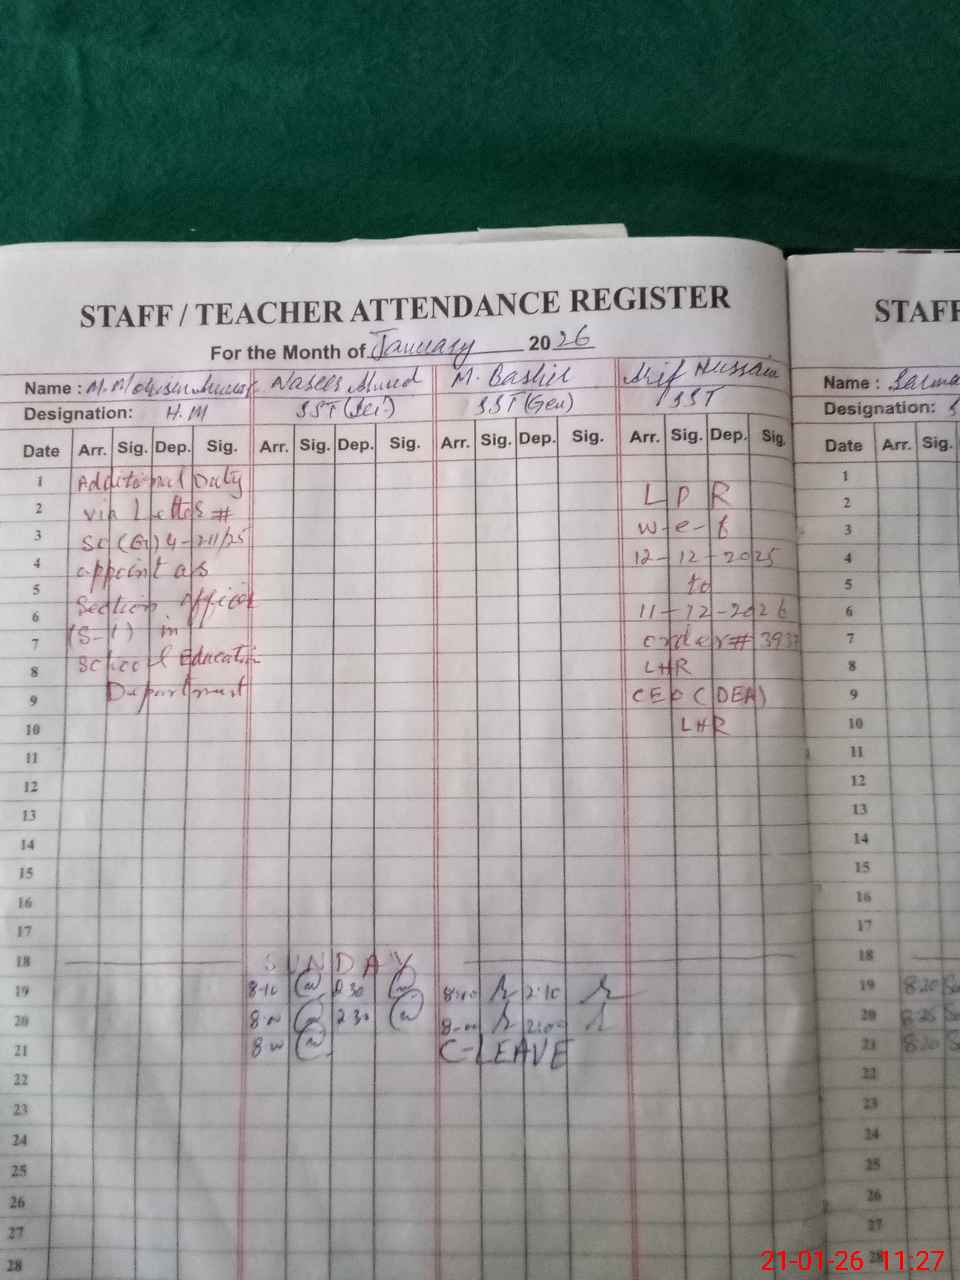 STAFF / TEACHER ATTENDANCE REGISTER
For the Month of January 2026
Name : M. Nasees M. Bashir Arif Hussain
Designation: H.M SST (Sci.) SST (Gen) SST
Date Arr. Sig. Dep. Sig. Arr. Sig. Dep. Sig. Arr. Sig. Dep. Sig. Arr. Sig. Dep. Sig.
1 Additional Duty
2 via Letter # L P R
3 w-e-f
4 appoint as 12-12-2025
5 Section Officer to
6 (S-1) in 11-12-2026
7 School Education order # 3937
8 Department LHR
9 CEO (DEA)
10 LHR
11
12
13
14
15
16
17
18 SUNDAY
19 8-10 2 30 8-00 2:10
20 2 30 8-00 2:00
21 C-LEAVE
22
23
24
25
26
27
28
STAFF
Name : Salma
Designation:
Date Arr. Sig.
1
2
3
4
5
6
7
8
9
10
11
12
13
14
15
16
17
18
19 8:20
20 8:25
21 8:20
22
23
24
25
26
27
28
21-01-26 11:27